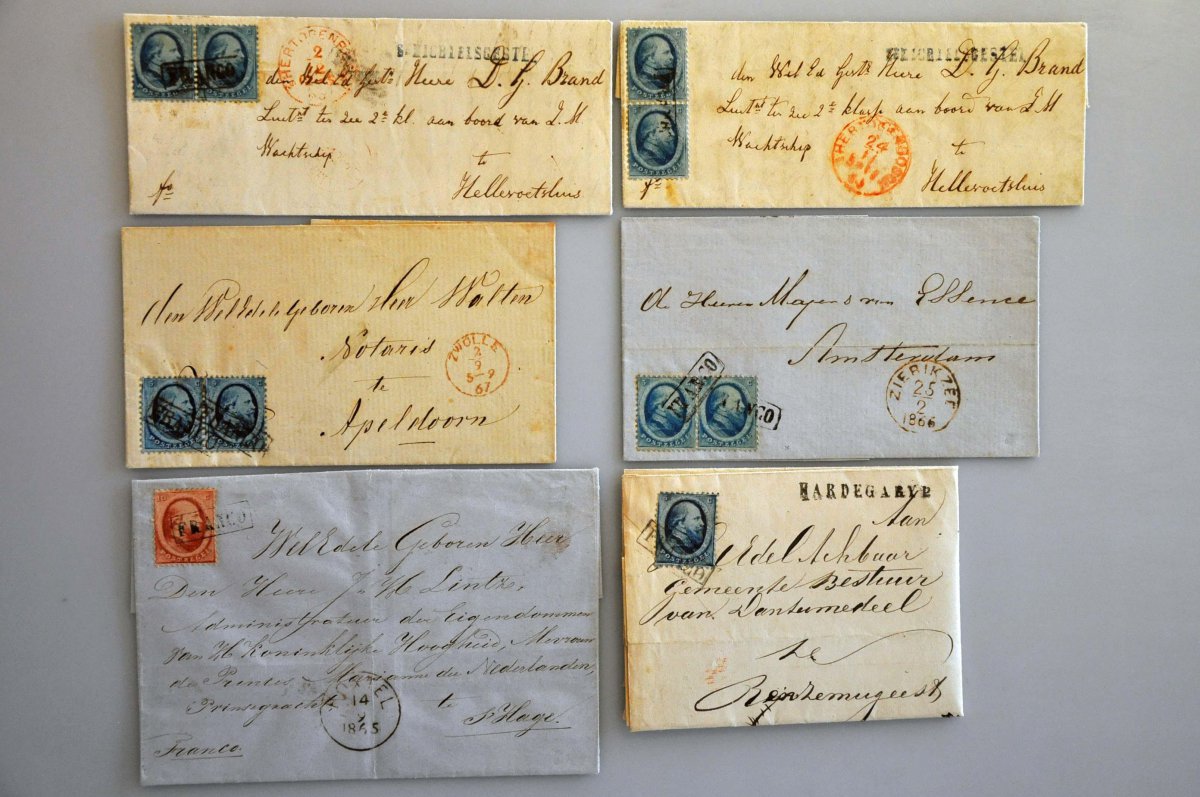 FRANCO
2
den Wel Ed Gestr Heere D. G. Brand
Luitnt ter zee 2e kl. aan boord van Z. M
Wachtschip
te
Hellevoetsluis
fo
POSTZEGEL
24
den Wel Ed Gestr Heere D. G. Brand
Luitnt ter zee 2e klasse aan boord van Z. M
Wachtschip
te
Hellevoetsluis
fo
den WelEdele Geboren Heer Walten
Notaris
te
Apeldoorn
ZWOLLE
2
9
5-9
67
POSTZEGEL POSTZEGEL
de Heeren
Amsterdam
FRANCO
FRANCO
POSTZEGEL POSTZEGEL
ZIERIKZEE
25
2
1866
POSTZEGEL
FRANCO
WelEdele Geboren Heer
Den Heere
Administrateur der Eigendommen
van H. Koninklijke Hoogheid, Mevrouw
de Prinses Marianne der Nederlanden,
Prinsegracht
te
s'Hage.
Franco.
14
9
1865
HARDEGARYP
POSTZEGEL
Aan
Edel Achbaar
Gemeente Bestuur
van Dantumedeel
te